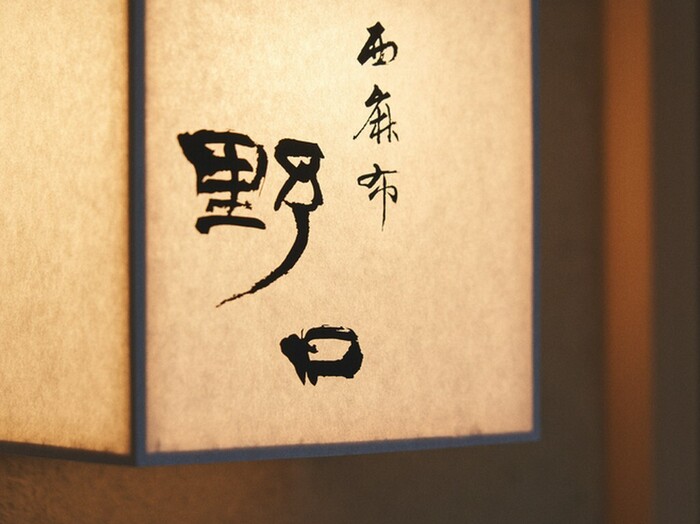 西麻布
野口